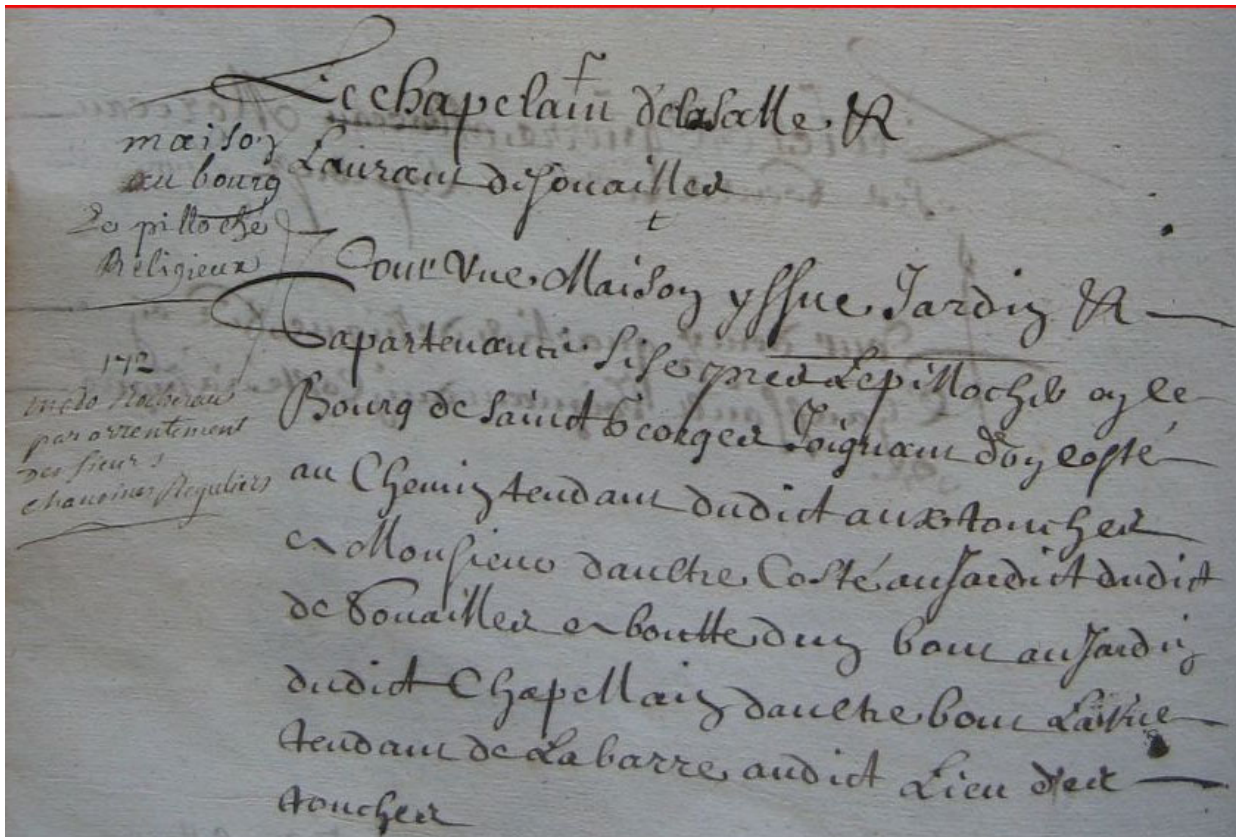 Le chapelain de la Salle &
Laurant de Souailles
Pour Une Maison yssue Jardin &
apartenances sise pres Le pillochet en le
Bourg de Saint Georges Joignant d'un costé
au Chemin tendant dudict aux touches
a Monsieur daultre Costé au Jardict dudict
de Souailles a boutte dun bout au Jardin
dudict Chapellain daultre bout La Rue
tendant de Labarre audict Lieu des
touches
maison
au bourg
Le pilloché
Religieux
172
par arrentement
des sieurs
chanoines Reguliers